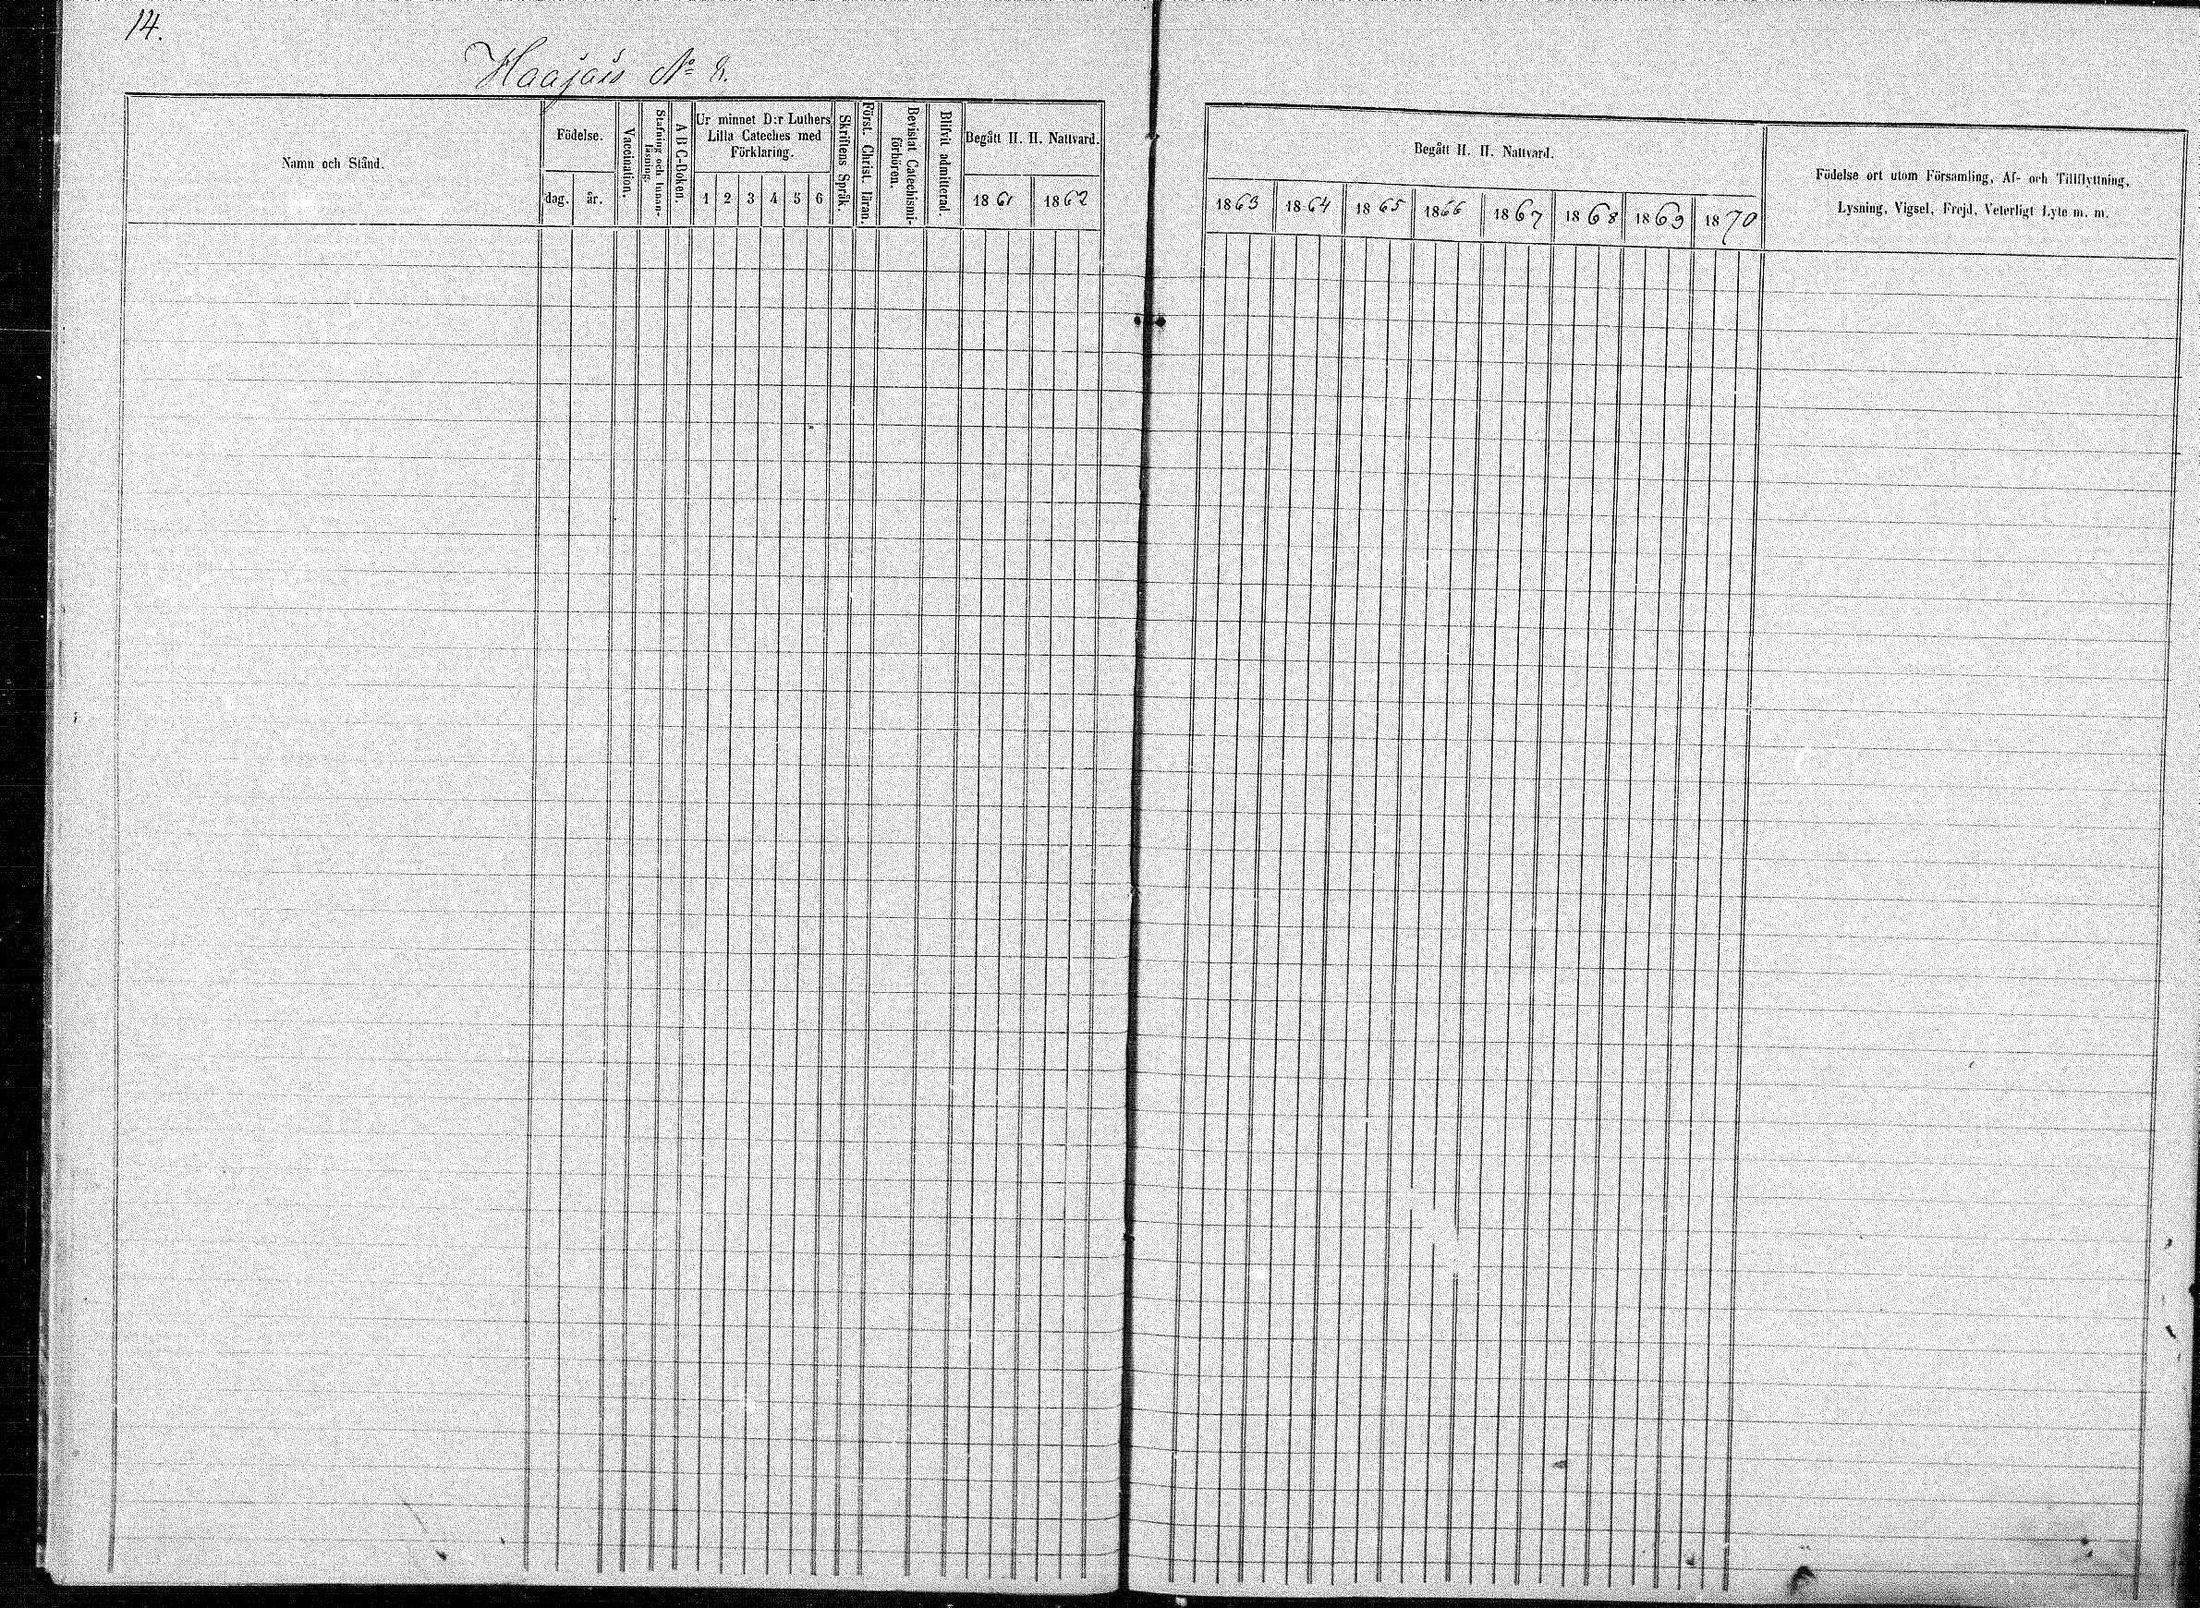 14.
Haajais No 8.
Namn och Stånd.
Födelse.
dag.
år.
Vaccination.
Stafning och Innan-
läsning.
A B C-Boken.
Ur minnet D:r Luthers
Lilla Cateches med
Förklaring.
1 2 3 4 5 6
Skriftens Språk.
Först. Christ. läran.
Bevistat Catechismi-
förhören.
Blifvit admitterad.
Begått H. H. Nattvard.
1861 1862
Begått H. H. Nattvard.
1863 1864 1865 1866 1867 1868 1869 1870
Födelse ort utom Församling, Af- och Tillflyttning,
Lysning, Vigsel, Frejd, Veterligt Lyte m. m.